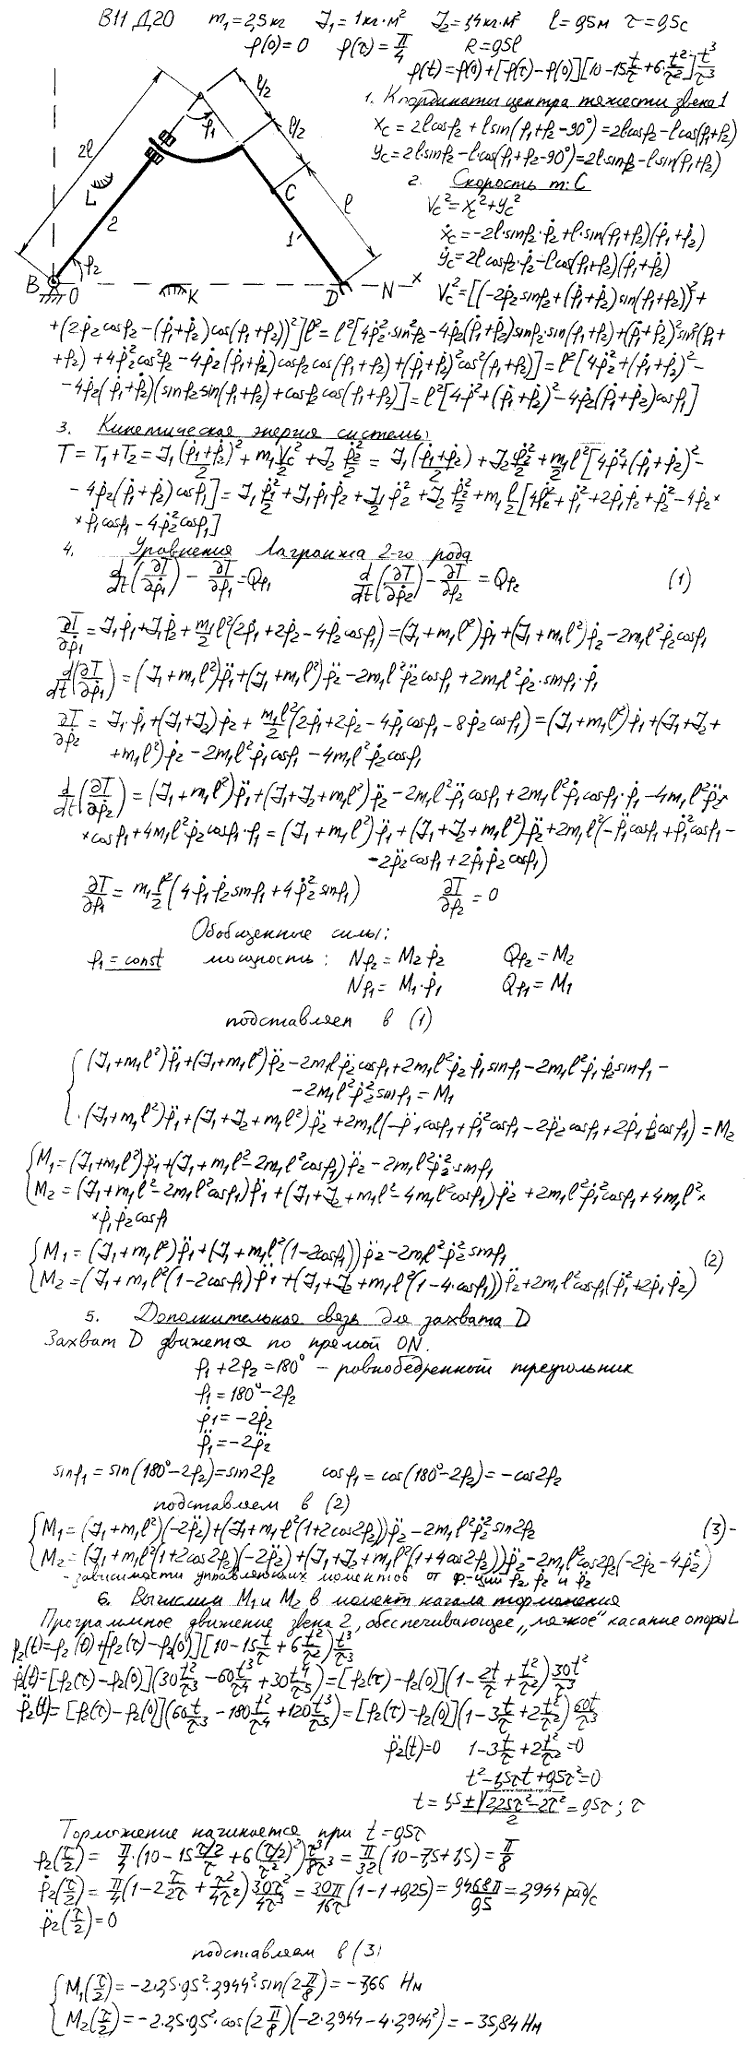 В11 Д20 m₁=2,5кг J₁=1кг·м² J₂=1,4кг·м² l=0,5м τ=0,5с
φ(0)=0 φ(τ)=π/4 R=0,5l
φ(t)=φ(0)+[φ(τ)-φ(0)][10-15t/τ+6t²/τ²]t³/τ³
1. Координаты центра тяжести звена 1
x_C=2lcosφ₂+lsin(φ₁+φ₂-90°)=2lcosφ₂-lcos(φ₁+φ₂)
y_C=2lsinφ₂-lcos(φ₁+φ₂-90°)=2lsinφ₂-lsin(φ₁+φ₂)
2. Скорость т. С
V_C²=ẋ_C²+ẏ_C²
ẋ_C=-2l·sinφ₂·φ̇₂+l·sin(φ₁+φ₂)(φ̇₁+φ̇₂)
ẏ_C=2lcosφ₂·φ̇₂-lcos(φ₁+φ₂)(φ̇₁+φ̇₂)
V_C²=[(-2φ̇₂sinφ₂+(φ̇₁+φ̇₂)sin(φ₁+φ₂))²+
2l l/2 l/2 l φ₁ φ₂ L 2 1 C B O K D N x
+(2φ̇₂cosφ₂-(φ̇₁+φ̇₂)cos(φ₁+φ₂))²]l²=l²[4φ̇₂²·sin²φ₂-4φ̇₂(φ̇₁+φ̇₂)sinφ₂·sin(φ₁+φ₂)+(φ̇₁+φ̇₂)²sin²(φ₁+
+φ₂)+4φ̇₂²cos²φ₂-4φ̇₂(φ̇₁+φ̇₂)cosφ₂cos(φ₁+φ₂)+(φ̇₁+φ̇₂)²cos²(φ₁+φ₂)]=l²[4φ̇₂²+(φ̇₁+φ̇₂)²-
-4φ̇₂(φ̇₁+φ̇₂)(sinφ₂sin(φ₁+φ₂)+cosφ₂cos(φ₁+φ₂))]=l²[4φ̇²+(φ̇₁+φ̇₂)²-4φ̇₂(φ̇₁+φ̇₂)cosφ₁]
3. Кинетическая энергия системы:
T=T₁+T₂=J₁(φ̇₁+φ̇₂)²/2+m₁V_C²/2+J₂φ̇₂²/2=J₁(φ̇₁+φ̇₂)/2+J₂φ̇₂²/2+m₁l²/2[4φ̇²+(φ̇₁+φ̇₂)²-
-4φ̇₂(φ̇₁+φ̇₂)cosφ₁]=J₁φ̇₁²/2+J₁φ̇₁φ̇₂+J₁/2φ̇₂²+J₂φ̇₂²/2+m₁l/2[4φ̇₂²+φ̇₁²+2φ̇₁φ̇₂+φ̇₂²-4φ̇₂×
×φ̇₁cosφ₁-4φ̇₂²cosφ₁]
4. Уравнения Лагранжа 2-го рода
d/dt(∂T/∂φ̇₁)-∂T/∂φ₁=Qφ₁ d/dt(∂T/∂φ̇₂)-∂T/∂φ₂=Qφ₂ (1)
∂T/∂φ̇₁=J₁φ̇₁+J₁φ̇₂+m₁/2l²(2φ̇₁+2φ̇₂-4φ̇₂cosφ₁)=(J₁+m₁l²)φ̇₁+(J₁+m₁l²)φ̇₂-2m₁l²φ̇₂cosφ₁
d/dt(∂T/∂φ̇₁)=(J₁+m₁l²)φ̈₁+(J₁+m₁l²)φ̈₂-2m₁l²φ̈₂cosφ₁+2m₁l²φ̇₂·sinφ₁·φ̇₁
∂T/∂φ̇₂=J₁·φ̇₁+(J₁+J₂)φ̇₂+m₁l²/2(2φ̇₁+2φ̇₂-4φ̇₁cosφ₁-8φ̇₂cosφ₁)=(J₁+m₁l²)φ̇₁+(J₁+J₂+
+m₁l²)φ̇₂-2m₁l²φ̇₁cosφ₁-4m₁l²φ̇₂cosφ₁
d/dt(∂T/∂φ̇₂)=(J₁+m₁l²)φ̈₁+(J₁+J₂+m₁l²)φ̈₂-2m₁l²φ̈₁cosφ₁+2m₁l²φ̇₁cosφ₁·φ̇₁-4m₁l²φ̈₂×
×cosφ₁+4m₁l²φ̇₂cosφ₁·φ̇₁=(J₁+m₁l²)φ̈₁+(J₁+J₂+m₁l²)φ̈₂+2m₁l²(-φ̈₁cosφ₁+φ̇₁²cosφ₁-
-2φ̈₂cosφ₁+2φ̇₁φ̇₂cosφ₁)
∂T/∂φ₁=m₁l²/2(4φ̇₁φ̇₂sinφ₁+4φ̇₂²sinφ₁) ∂T/∂φ₂=0
Обобщенные силы:
φ₁=const мощность: Nφ₂=M₂φ̇₂ Qφ₂=M₂
Nφ₁=M₁·φ̇₁ Qφ₁=M₁
подставляем в (1)
(J₁+m₁l²)φ̈₁+(J₁+m₁l²)φ̈₂-2m₁lφ̈₂cosφ₁+2m₁l²φ̇₂φ̇₁sinφ₁-2m₁l²φ̇₁φ̇₂sinφ₁-
-2m₁l²φ̇₂²sinφ₁=M₁
(J₁+m₁l²)φ̈₁+(J₁+J₂+m₁l²)φ̈₂+2m₁l(-φ̈₁cosφ₁+φ̇₁²cosφ₁-2φ̈₂cosφ₁+2φ̇₁φ̇₂cosφ₁)=M₂
M₁=(J₁+m₁l²)φ̈₁+(J₁+m₁l²-2m₁l²cosφ₁)φ̈₂-2m₁l²φ̇₂²·sinφ₁
M₂=(J₁+m₁l²-2m₁l²cosφ₁)φ̈₁+(J₁+J₂+m₁l²-4m₁l²cosφ₁)φ̈₂+2m₁l²φ̇₁²cosφ₁+4m₁l²×
×φ̇₁φ̇₂cosφ₁
M₁=(J₁+m₁l²)φ̈₁+(J₁+m₁l²(1-2cosφ₁))φ̈₂-2m₁l²φ̇₂²sinφ₁
M₂=(J₁+m₁l²(1-2cosφ₁)φ̈₁+(J₁+J₂+m₁l²(1-4·cosφ₁))φ̈₂+2m₁l²cosφ₁(φ̇₁²+2φ̇₁φ̇₂) (2)
5. Дополнительная связь для захвата D
Захват D движется по прямой ON.
φ₁+2φ₂=180° - равнобедренный треугольник
φ₁=180°-2φ₂
φ̇₁=-2φ̇₂
φ̈₁=-2φ̈₂
sinφ₁=sin(180°-2φ₂)=sin2φ₂ cosφ₁=cos(180°-2φ₂)=-cos2φ₂
подставляем в (2)
M₁=(J₁+m₁l²)(-2φ̈₂)+(J₁+m₁l²(1+2cos2φ₂))φ̈₂-2m₁l²φ̇₂²sin2φ₂ (3)-
M₂=(J₁+m₁l²(1+2cos2φ₂)(-2φ̈₂)+(J₁+J₂+m₁l²(1+4cos2φ₂))φ̈₂-2m₁l²cos2φ₂(-2φ̇₂-4φ̇₂²)
-зависимости управляющих моментов от ф-ций φ₂, φ̇₂ и φ̈₂
6. Вычислим M₁ и M₂ в момент начала торможения
Программное движение звена 2, обеспечивающее „мягкое" касание опоры L
φ₂(t)=φ₂(0)+[φ₂(τ)-φ₂(0)][10-15t/τ+6t²/τ²)t³/τ³
φ̇(t)=[φ₂(τ)-φ₂(0)](30t²/τ³-60t³/τ⁴+30t⁴/τ⁵)=[φ₂(τ)-φ₂(0)](1-2t/τ+t²/τ²)30t²/τ³
φ̈₂(t)=[φ₂(τ)-φ₂(0)](60t/τ³-180t²/τ⁴+120t³/τ⁵)=[φ₂(τ)-φ₂(0)](1-3t/τ+2t²/τ²)60t/τ³
φ̈₂(t)=0 1-3t/τ+2t²/τ²=0
t²-1,5τt+0,5τ²=0
t=1,5±√(2,25τ²-2τ²)/2=0,5τ; τ
Торможение начинается при t=0,5τ
φ₂(τ/2)=π/4·(10-15(τ/2)/τ+6(τ/2)²/τ²)τ³/8τ³=π/32(10-7,5+1,5)=π/8
φ̇₂(τ/2)=π/4(1-2τ/2τ+τ²/4τ²)30τ²/4τ³=30π/16τ(1-1+0,25)=0,468π/0,5=2,944 рад/с
φ̈₂(τ/2)=0
подставляем в (3)
M₁(τ/2)=-2·2,5·0,5²·2,944²·sin(2π/8)=-7,66 Нм
M₂(τ/2)=-2·2,5·0,5²·cos(2π/8)(-2·2,944-4·2,944²)=-35,84 Нм